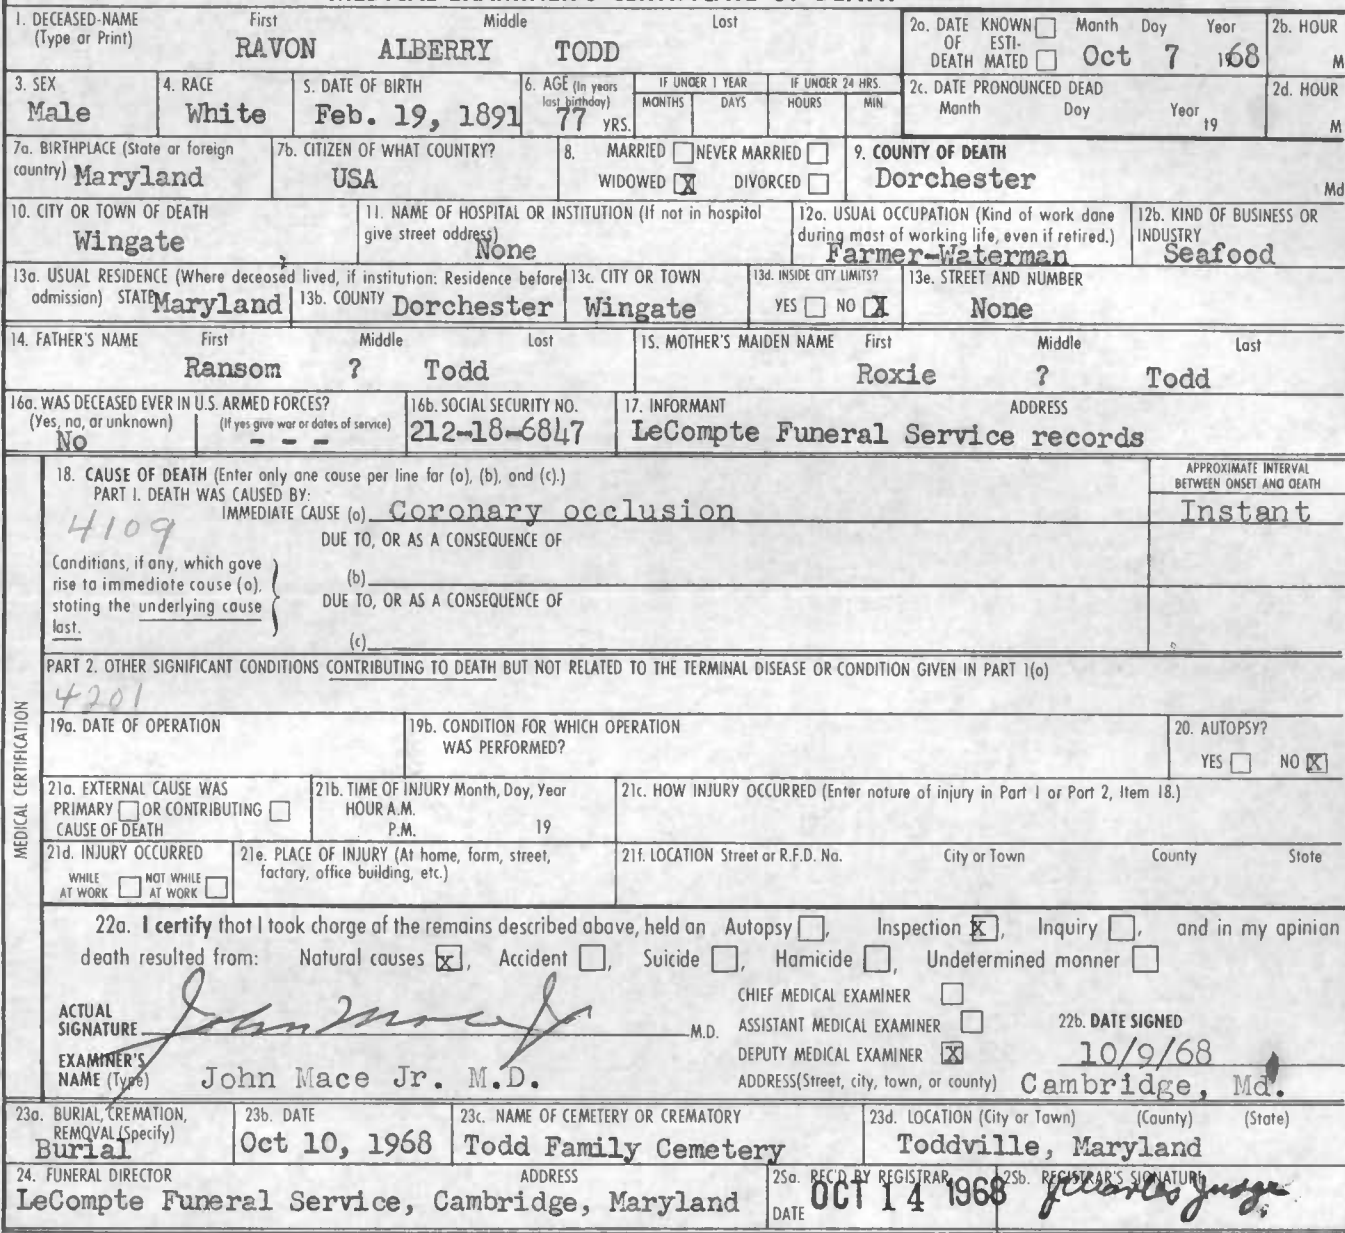 1. DECEASED-NAME First Middle Last
(Type or Print) RAVON ALBERRY TODD
2a. DATE KNOWN Month Day Year
OF ESTI-
DEATH MATED Oct 7 1968
2b. HOUR
M
3. SEX
Male
4. RACE
White
5. DATE OF BIRTH
Feb. 19, 1891
6. AGE (In years
last birthday)
77 YRS.
IF UNDER 1 YEAR
MONTHS DAYS
IF UNDER 24 HRS.
HOURS MIN
2c. DATE PRONOUNCED DEAD
Month Day Year
19
2d. HOUR
M
7a. BIRTHPLACE (State or foreign
country) Maryland
7b. CITIZEN OF WHAT COUNTRY?
USA
8. MARRIED NEVER MARRIED
WIDOWED X DIVORCED
9. COUNTY OF DEATH
Dorchester Md
10. CITY OR TOWN OF DEATH
Wingate
11. NAME OF HOSPITAL OR INSTITUTION (If not in hospital
give street address)
None
12a. USUAL OCCUPATION (Kind of work done
during most of working life, even if retired.)
Farmer-Waterman
12b. KIND OF BUSINESS OR
INDUSTRY
Seafood
13a. USUAL RESIDENCE (Where deceased lived, if institution: Residence before
admission) STATE Maryland
13b. COUNTY Dorchester
13c. CITY OR TOWN
Wingate
13d. INSIDE CITY LIMITS?
YES NO X
13e. STREET AND NUMBER
None
14. FATHER'S NAME First Middle Last
Ransom ? Todd
15. MOTHER'S MAIDEN NAME First Middle Last
Roxie ? Todd
16a. WAS DECEASED EVER IN U.S. ARMED FORCES?
(Yes, no, or unknown) (If yes give war or dates of service)
No - - -
16b. SOCIAL SECURITY NO.
212-18-6847
17. INFORMANT ADDRESS
LeCompte Funeral Service records
MEDICAL CERTIFICATION
18. CAUSE OF DEATH (Enter only one cause per line for (a), (b), and (c).)
PART I. DEATH WAS CAUSED BY:
IMMEDIATE CAUSE (a) Coronary occlusion
4109
APPROXIMATE INTERVAL
BETWEEN ONSET AND DEATH
Instant
DUE TO, OR AS A CONSEQUENCE OF
Conditions, if any, which gave
rise to immediate cause (a),
stating the underlying cause
last.
(b)
DUE TO, OR AS A CONSEQUENCE OF
(c)
PART 2. OTHER SIGNIFICANT CONDITIONS CONTRIBUTING TO DEATH BUT NOT RELATED TO THE TERMINAL DISEASE OR CONDITION GIVEN IN PART 1(a)
4201
19a. DATE OF OPERATION
19b. CONDITION FOR WHICH OPERATION
WAS PERFORMED?
20. AUTOPSY?
YES NO X
21a. EXTERNAL CAUSE WAS
PRIMARY OR CONTRIBUTING
CAUSE OF DEATH
21b. TIME OF INJURY Month, Day, Year
HOUR A.M.
P.M. 19
21c. HOW INJURY OCCURRED (Enter nature of injury in Part 1 or Part 2, Item 18.)
21d. INJURY OCCURRED
WHILE NOT WHILE
AT WORK AT WORK
21e. PLACE OF INJURY (At home, farm, street,
factory, office building, etc.)
21f. LOCATION Street or R.F.D. No. City or Town County State
22a. I certify that I took charge of the remains described above, held an Autopsy , Inspection X , Inquiry , and in my opinion
death resulted from: Natural causes X , Accident , Suicide , Homicide , Undetermined manner
ACTUAL
SIGNATURE John Mace Jr M.D.
CHIEF MEDICAL EXAMINER
ASSISTANT MEDICAL EXAMINER
DEPUTY MEDICAL EXAMINER X
22b. DATE SIGNED
10/9/68
EXAMINER'S
NAME (Type) John Mace Jr. M.D.
ADDRESS (Street, city, town, or county) Cambridge, Md.
23a. BURIAL, CREMATION,
REMOVAL (Specify)
Burial
23b. DATE
Oct 10, 1968
23c. NAME OF CEMETERY OR CREMATORY
Todd Family Cemetery
23d. LOCATION (City or Town) (County) (State)
Toddville, Maryland
24. FUNERAL DIRECTOR ADDRESS
LeCompte Funeral Service, Cambridge, Maryland
25a. REC'D BY REGISTRAR
DATE OCT 14 1968
25b. REGISTRAR'S SIGNATURE
Charles Judge